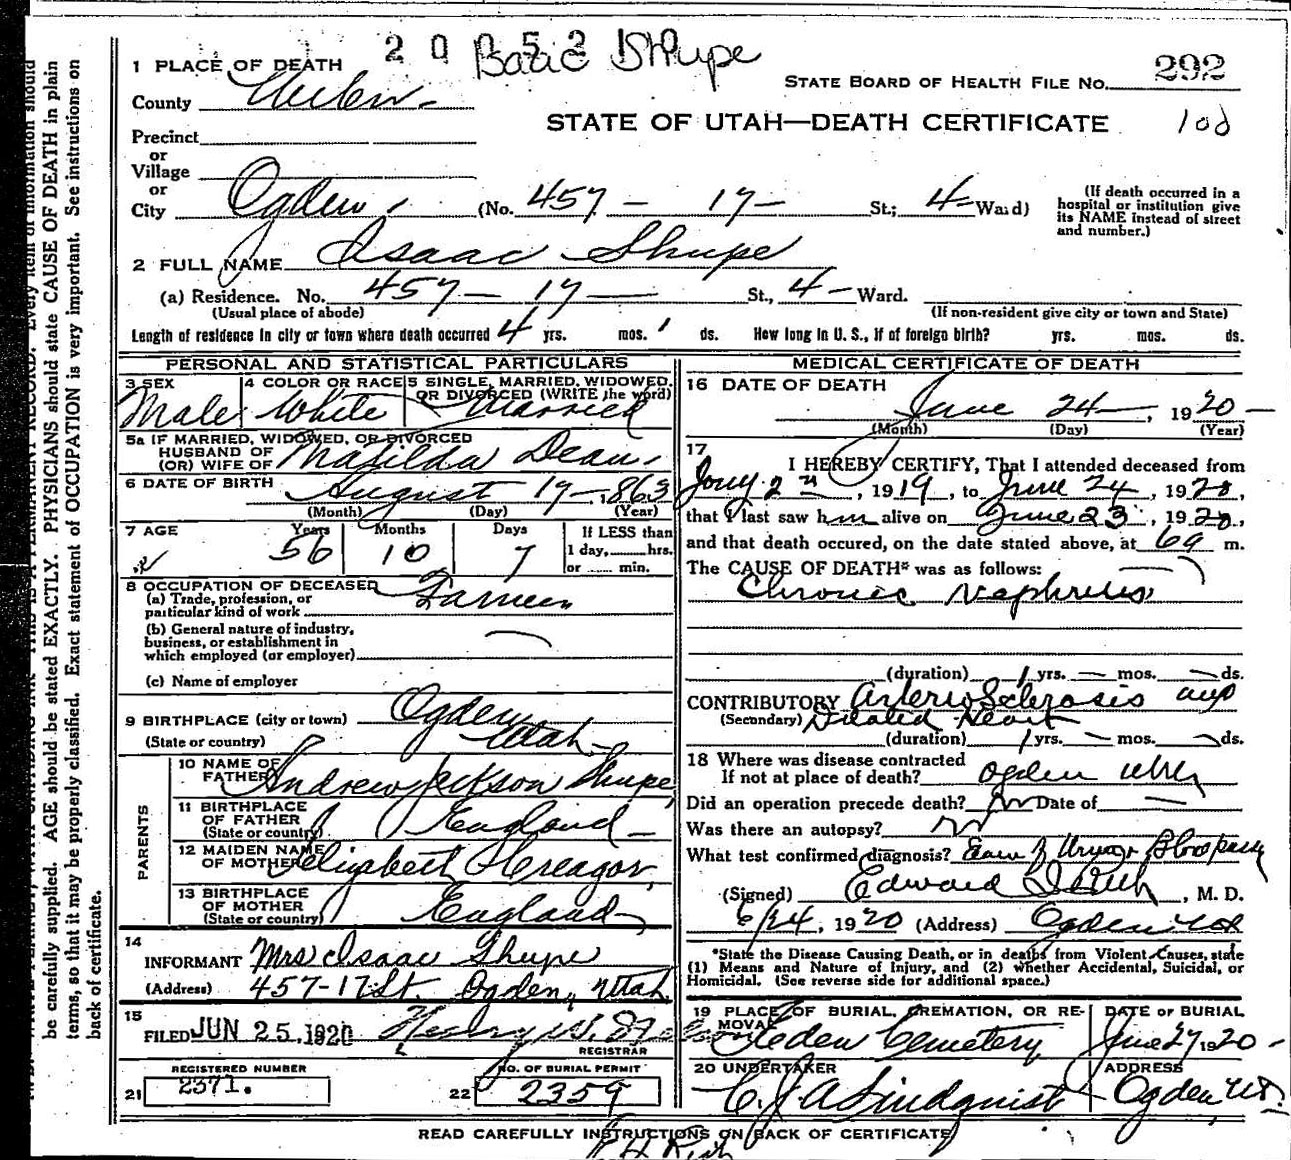 2 0 0 5 2 1 0
Isaac Shupe
1 PLACE OF DEATH
STATE BOARD OF HEALTH FILE No. 292
County Weber
STATE OF UTAH—DEATH CERTIFICATE
Precinct
or
Village
or
City Ogden (No. 457 — 17 — St.; 4 — Ward)
(If death occurred in a hospital or institution give its NAME instead of street and number.)
2 FULL NAME Isaac Shupe
(a) Residence. No. 457 — 17 — St., 4 — Ward.
(Usual place of abode)
(If non-resident give city or town and State)
Length of residence in city or town where death occurred 4 yrs. mos. ds. How long in U. S., if of foreign birth? yrs. mos. ds.
PERSONAL AND STATISTICAL PARTICULARS
3 SEX
Male
4 COLOR OR RACE
White
5 SINGLE, MARRIED, WIDOWED, OR DIVORCED (WRITE the word)
Married
5a IF MARRIED, WIDOWED, OR DIVORCED
HUSBAND OF
(OR) WIFE OF Matilda Dean
6 DATE OF BIRTH August 19 — 1863
(Month) (Day) (Year)
7 AGE Years 56 Months 10 Days 7
If LESS than
1 day, hrs.
or min.
8 OCCUPATION OF DECEASED
(a) Trade, profession, or
particular kind of work Farmer
(b) General nature of industry,
business, or establishment in
which employed (or employer)
(c) Name of employer
9 BIRTHPLACE (city or town) Ogden
(State or country) Utah
PARENTS
10 NAME OF
FATHER Andrew Jackson Shupe
11 BIRTHPLACE
OF FATHER England
(State or country)
12 MAIDEN NAME
OF MOTHER Elizabeth
13 BIRTHPLACE
OF MOTHER
(State or country) England
14
INFORMANT Mrs Isaac Shupe
(Address) 457-17 St. Ogden, Utah
15
FILED JUN 25, 1920
REGISTRAR
REGISTERED NUMBER
21 2371.
NO. OF BURIAL PERMIT
22 2359
MEDICAL CERTIFICATE OF DEATH
16 DATE OF DEATH
June 24 — , 1920 —
(Month) (Day) (Year)
17
I HEREBY CERTIFY, That I attended deceased from
, 1919, to June 24, 1920,
that I last saw him alive on June 23, 1920,
and that death occured, on the date stated above, at 6 a m.
The CAUSE OF DEATH* was as follows:
Chronic Nephritis
(duration) 1 yrs. — mos. — ds.
CONTRIBUTORY Arterio Sclerosis and
(Secondary) Dilated Heart
(duration) 1 yrs. — mos. — ds.
18 Where was disease contracted
If not at place of death? Ogden Utah
Did an operation precede death? No Date of —
Was there an autopsy? No
What test confirmed diagnosis?
(Signed) Edward I Rich, M. D.
6/24, 1920 (Address) Ogden Utah
*State the Disease Causing Death, or in deaths from Violent Causes, state
(1) Means and Nature of Injury, and (2) whether Accidental, Suicidal, or
Homicidal. (See reverse side for additional space.)
19 PLACE OF BURIAL, CREMATION, OR REMOVAL
Ogden Cemetery
DATE OF BURIAL
June 27, 1920 —
20 UNDERTAKER
Lindquist
ADDRESS
Ogden, Ut.
READ CAREFULLY INSTRUCTIONS ON BACK OF CERTIFICATE
be carefully supplied. AGE should be stated EXACTLY. PHYSICIANS should state CAUSE OF DEATH in plain
terms, so that it may be properly classified. Exact statement of OCCUPATION is very important. See instructions on
back of certificate.